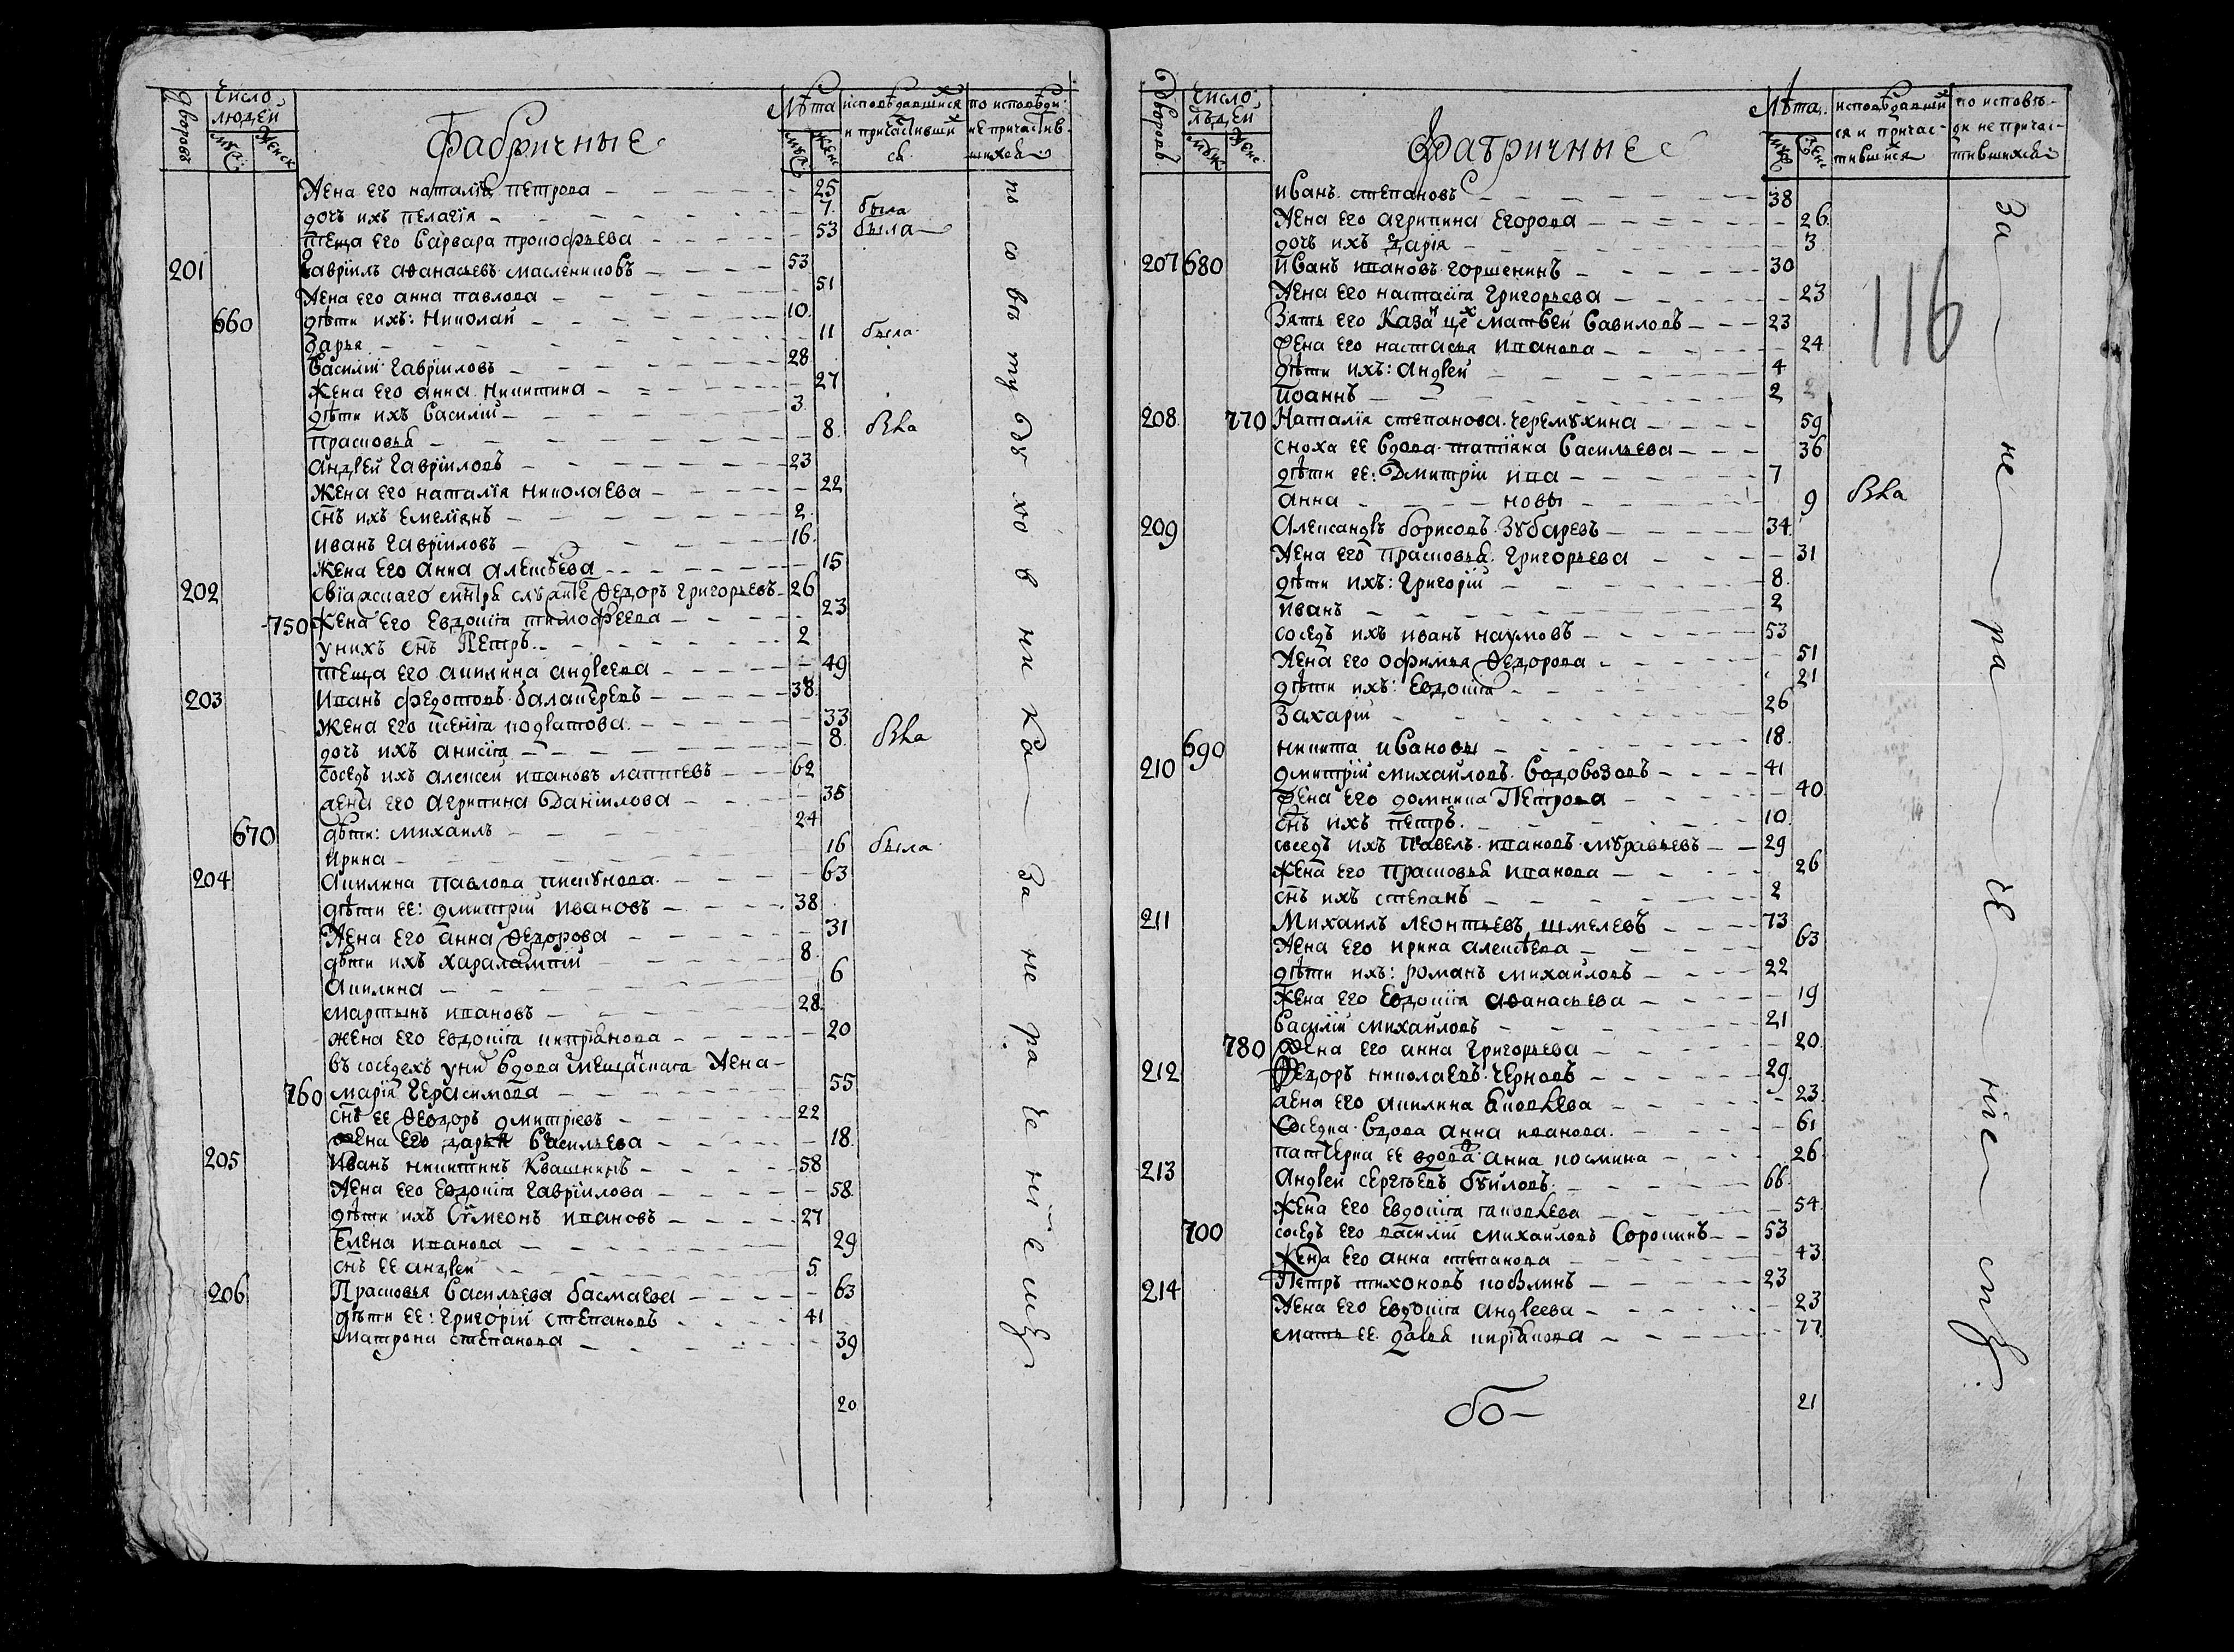 дворовъ
число людей
муж.
женск
Фабричные
лѣта
муж.
жен.
исповѣдавшихся и причастившихся
по исповѣди не причастившихся
жена его наталїя петрова 25
дочь ихъ пелагїя 7 была
теща его варвара прокофьева 53 была
201 гаврїилъ аѳанасьевъ маслениковъ 53
жена его анна павлова 51
660 дѣти ихъ: николай 10
дарья 11 была
василїй гаврїиловъ 28
жена его анна никитина 27
дѣти ихъ василїй 3
прасковья 8 была
андрей гаврїиловъ 23
жена его наталїя николаева 22
снъ ихъ емелїянъ 2
иванъ гаврїиловъ 16
жена его анна алексѣева 15
202 ѳедоръ григорьевъ 26
750 жена его евдокїя тимофеева 23
у нихъ снъ петръ 2
теща его акилина андреева 49
203 иванъ федотовъ балакеревъ 38
жена его ксенїя кодратова 33
дочь ихъ анисїя 8 была
соседъ ихъ алексей ивановъ лаптевъ 62
жена его агрипина данїилова 35
670 дѣти: михаилъ 24
ирина 16 была
204 акилина павлова пискунова 63
дѣти ее: дмитрїй ивановъ 38
жена его анна ѳедорова 31
дѣти ихъ харалампїй 8
акилина 6
мартынъ ивановъ 28
жена его евдокїя кипрїянова 20
въ соседехъ у них вдова мещанскаго жена
760 марїя герасимова 55
снъ ее ѳеодоръ дмитрїевъ 22
жена его дарья васильева 18
205 иванъ никитинъ квашнинъ 58
жена его евдокїя гаврїилова 58
дѣти ихъ сѵмеонъ ивановъ 27
елена иванова 29
снъ ее андрей 5
206 прасковья васильева басмаева 63
дѣти ее: григорїй степановъ 41
матрона степанова 39
20
по со въ ту дх хо в ни ка за не ра че нїемъ
дворовъ
число людей
мужс
женс.
Фабричные
лѣта
муж
женс
исповѣдавшихся и причастившихся
по исповѣди не причастившихся
116
иванъ степановъ 38
жена его агрипина егорова 26
дочь ихъ дарїя 3
207 680 иванъ ивановъ горшенинъ 30
жена его настасїя григорьева 23
зять его матвей вавиловъ 23
жена его настасья иванова 24
дѣти ихъ: андрей 4
иоаннъ 2
208 770 наталїя степанова черемухина 59
сноха ее вдова татїяна васильева 36
дѣти ее: дмитрїй ива 7
анна новы 9 была
209 александръ борисовъ зубаревъ 34
жена его прасковья григорьева 31
дѣти ихъ: григорїй 8
иванъ 2
соседъ ихъ иванъ наумовъ 53
жена его офимья ѳедорова 51
дѣти ихъ: евдокїя 21
захарїй 26
690 никита ивановы 18
210 дмитрїй михайловъ водовозовъ 41
жена его домника петрова 40
снъ ихъ петръ 10
соседъ ихъ павелъ ивановъ муравьевъ 29
жена его прасковья иванова 26
снъ ихъ степанъ 2
211 михаилъ леонтьевъ шмелевъ 73
жена его ирина алексѣева 63
дѣти ихъ: романъ михаиловъ 22
жена его евдокїя аѳанасьева 19
василїй михаиловъ 21
780 жена его анна григорьева 20
212 ѳедоръ николаевъ черновъ 29
жена его акилина 23
соседка вдова анна иванова 61
патчерка ее вдова анна космина 26
213 андрей сергѣевъ буиловъ 66
жена его евдокїя яковлева 54
700 соседъ его василїй михаиловъ сорокинъ 53
жена его анна степанова 43
214 петръ тихоновъ 23
жена его евдокїя андреева 23
мать ее кирїякова 77
21
за не ра че нїе мъ